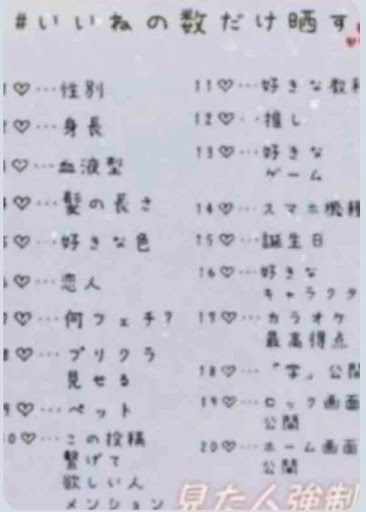 #いいねの数だけ晒す
1♡…性別
2♡…身長
3♡…血液型
4♡…髪の長さ
5♡…好きな色
6♡…恋人
7♡…何フェチ?
8♡…プリクラ
見せる
9♡…ペット
10♡…この投稿
繋げて
欲しい人
メンション
11♡…好きな教科
12♡…推し
13♡…好きな
ゲーム
14♡…スマホ機種
15♡…誕生日
16♡…好きな
キャラクタ
17♡…カラオケ
最高得点
18♡…「字」公開
19♡…ロック画面
公開
20♡…ホーム画面
公開
見た人強制